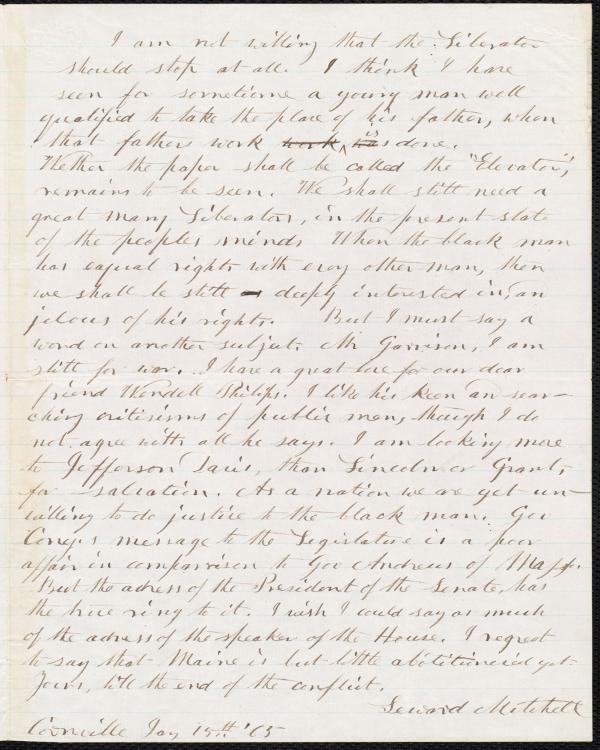 I am not willing that the Liberator
should stop at all. I think I have
seen for sometime a young man well
qualified to take the place of his father, when
that fathers work work is was done.
Wether the paper shall be called the "Elevator",
remains to be seen. We shall still need a
great many Liberators, in the present state
of the peoples minds When the black man
has eaqual rights with evry other man, then
we shall be still deeply interested in, an
jelous of his rights. But I must say a
word on another subject. Mr Garrison, I am
still for war. I have a great love for our dear
friend Wendell Philips. I like his keen an sear-
ching critisisms of public men, though I do
not agree with all he says. I am looking more
to Jefferson Davis, than Lincoln or Grant,
for salvation. As a nation we are yet un-
willing to do justice to the black man. Gov
Cony,s message to the Legislature is a poor
affair in comparrison to Gov Andrews of Mass.
But the adress of the President of the Senate, has
the true ring to it. I wish I could say as much
of the adress of the speaker of the House. I regret
to say that Maine is but little abolitionized yet.
Yours, till the end of the conflict.
Seward Mitchell
Cornville Jan 15th '65